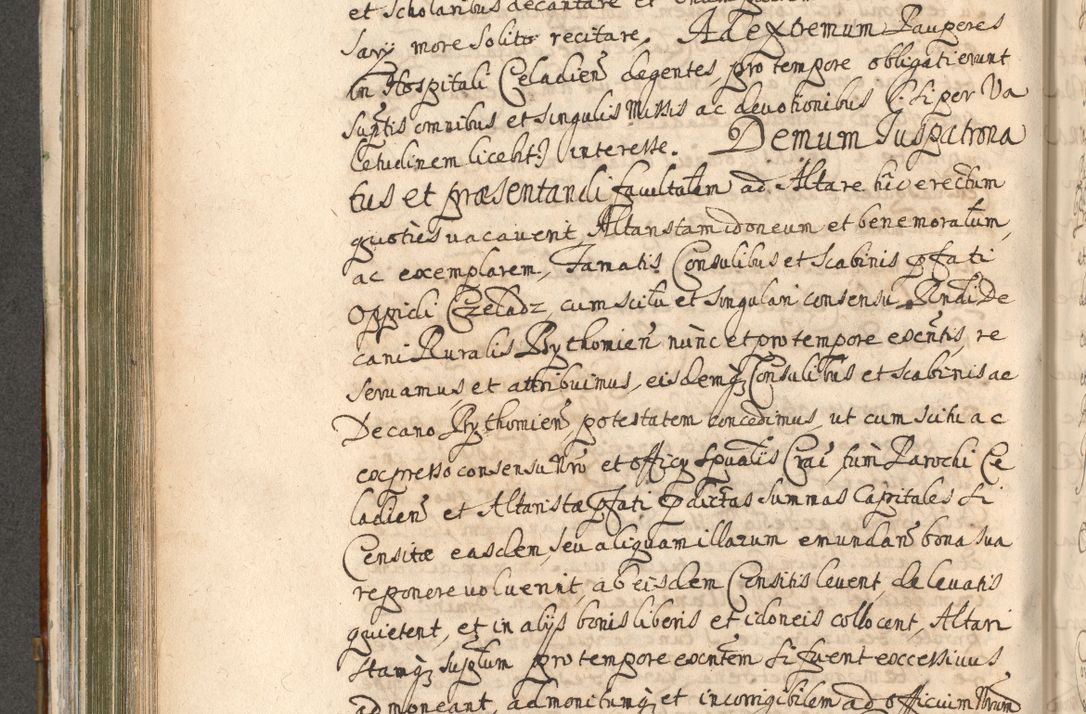 et Scholaribus decantare et
Savy more solito recitare. Ad extremum Pauperes
in Hospitali Celadien̄ degentes, pro tempore obligati erunt
Sup̄tis omnibus et singulis Missis ac devotionibus (: si per Va
letudinem licebit :) interesse. Demum Juspatrona
tus et præsentandi facultatem ad Altare hic erectum
quoties vacaverit, Altaristam idoneum et bene moratum,
ac exemplarem, Famatis Consulibus et Scabinis p̄fati
Oppidi Czeladz, cum scitu et singulari consensu Rndi De
cani Ruralis Bythomien̄ nùnc et pro tempore exēntis, re
servamus et attribuimus, eisdemq; Consulibus et Scabinis ac
Decano Bythomien̄, potestatem concedimus, ut cum scitu ac
expresso consensu Nro et officij Spūalis Crac̄ tùm Parochi Ce
ladien̄ et Altaristæ p̄fati p̄dictas Summas Capitales si
Censitæ easdem, seu aliquam illarum emundan̄ bona sua
reponere voluerint, ab eisdem Censitis levent, de levatis
quietent, et in alijs bonis liberis et idoneis collocent, Altari
stamq; sup̄tum pro tempore exēntem si fuerit excessivus
admoneant, admonitumq; et incorrigibilem ad officium Nrum